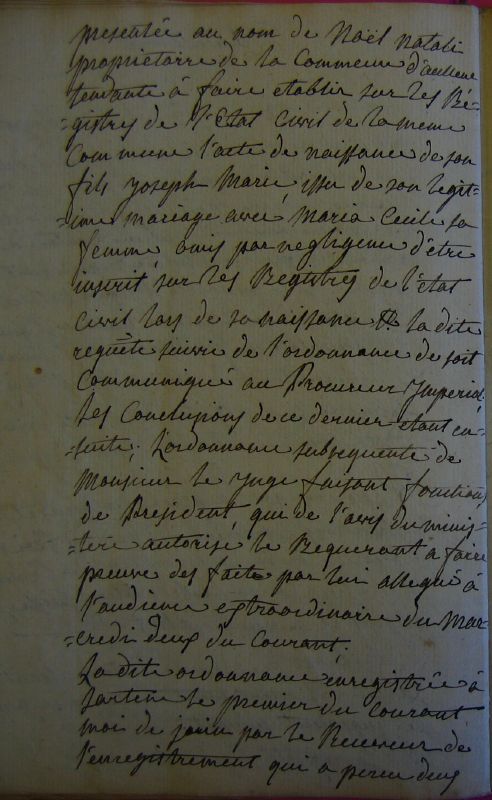 presentée au nom de Noël natali
proprietaire de la Commune d'aullene
tendante à faire etablir sur les Ré-
=gistres de l'Etat Civil de la meme
Commune l'acte de naissance de son
fils Joseph Marie, issu de son legit-
=ime mariage avec Maria Cecile sa
femme, omis par negligence d'être
inscrit sur les Registres de l'Etat
Civil lors de sa naissance la dite
requête suivie de l'ordonnance de soit
Communiqué au Procureur Imperial
les Conclusions de ce dernier etant en-
=suite; L'ordonnance subsequente de
Monsieur le Juge faisant fonctions
de President, qui de l'avis du minis-
=tere autorise le Requerant a faire
preuve des faits par lui allegué à
l'audience extraordinaire du Mer-
=credi deux du Courant.
La dite ordonnance enregistrée à
Sartene le premier du Courant
mois de juin par le Receveur de
l'enregistrement qui a perçu deux